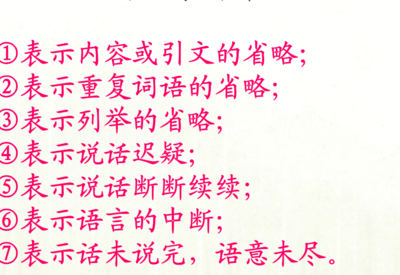 ①表示内容或引文的省略;
②表示重复词语的省略;
③表示列举的省略;
④表示说话迟疑;
⑤表示说话断断续续;
⑥表示语言的中断;
⑦表示话未说完，语意未尽。